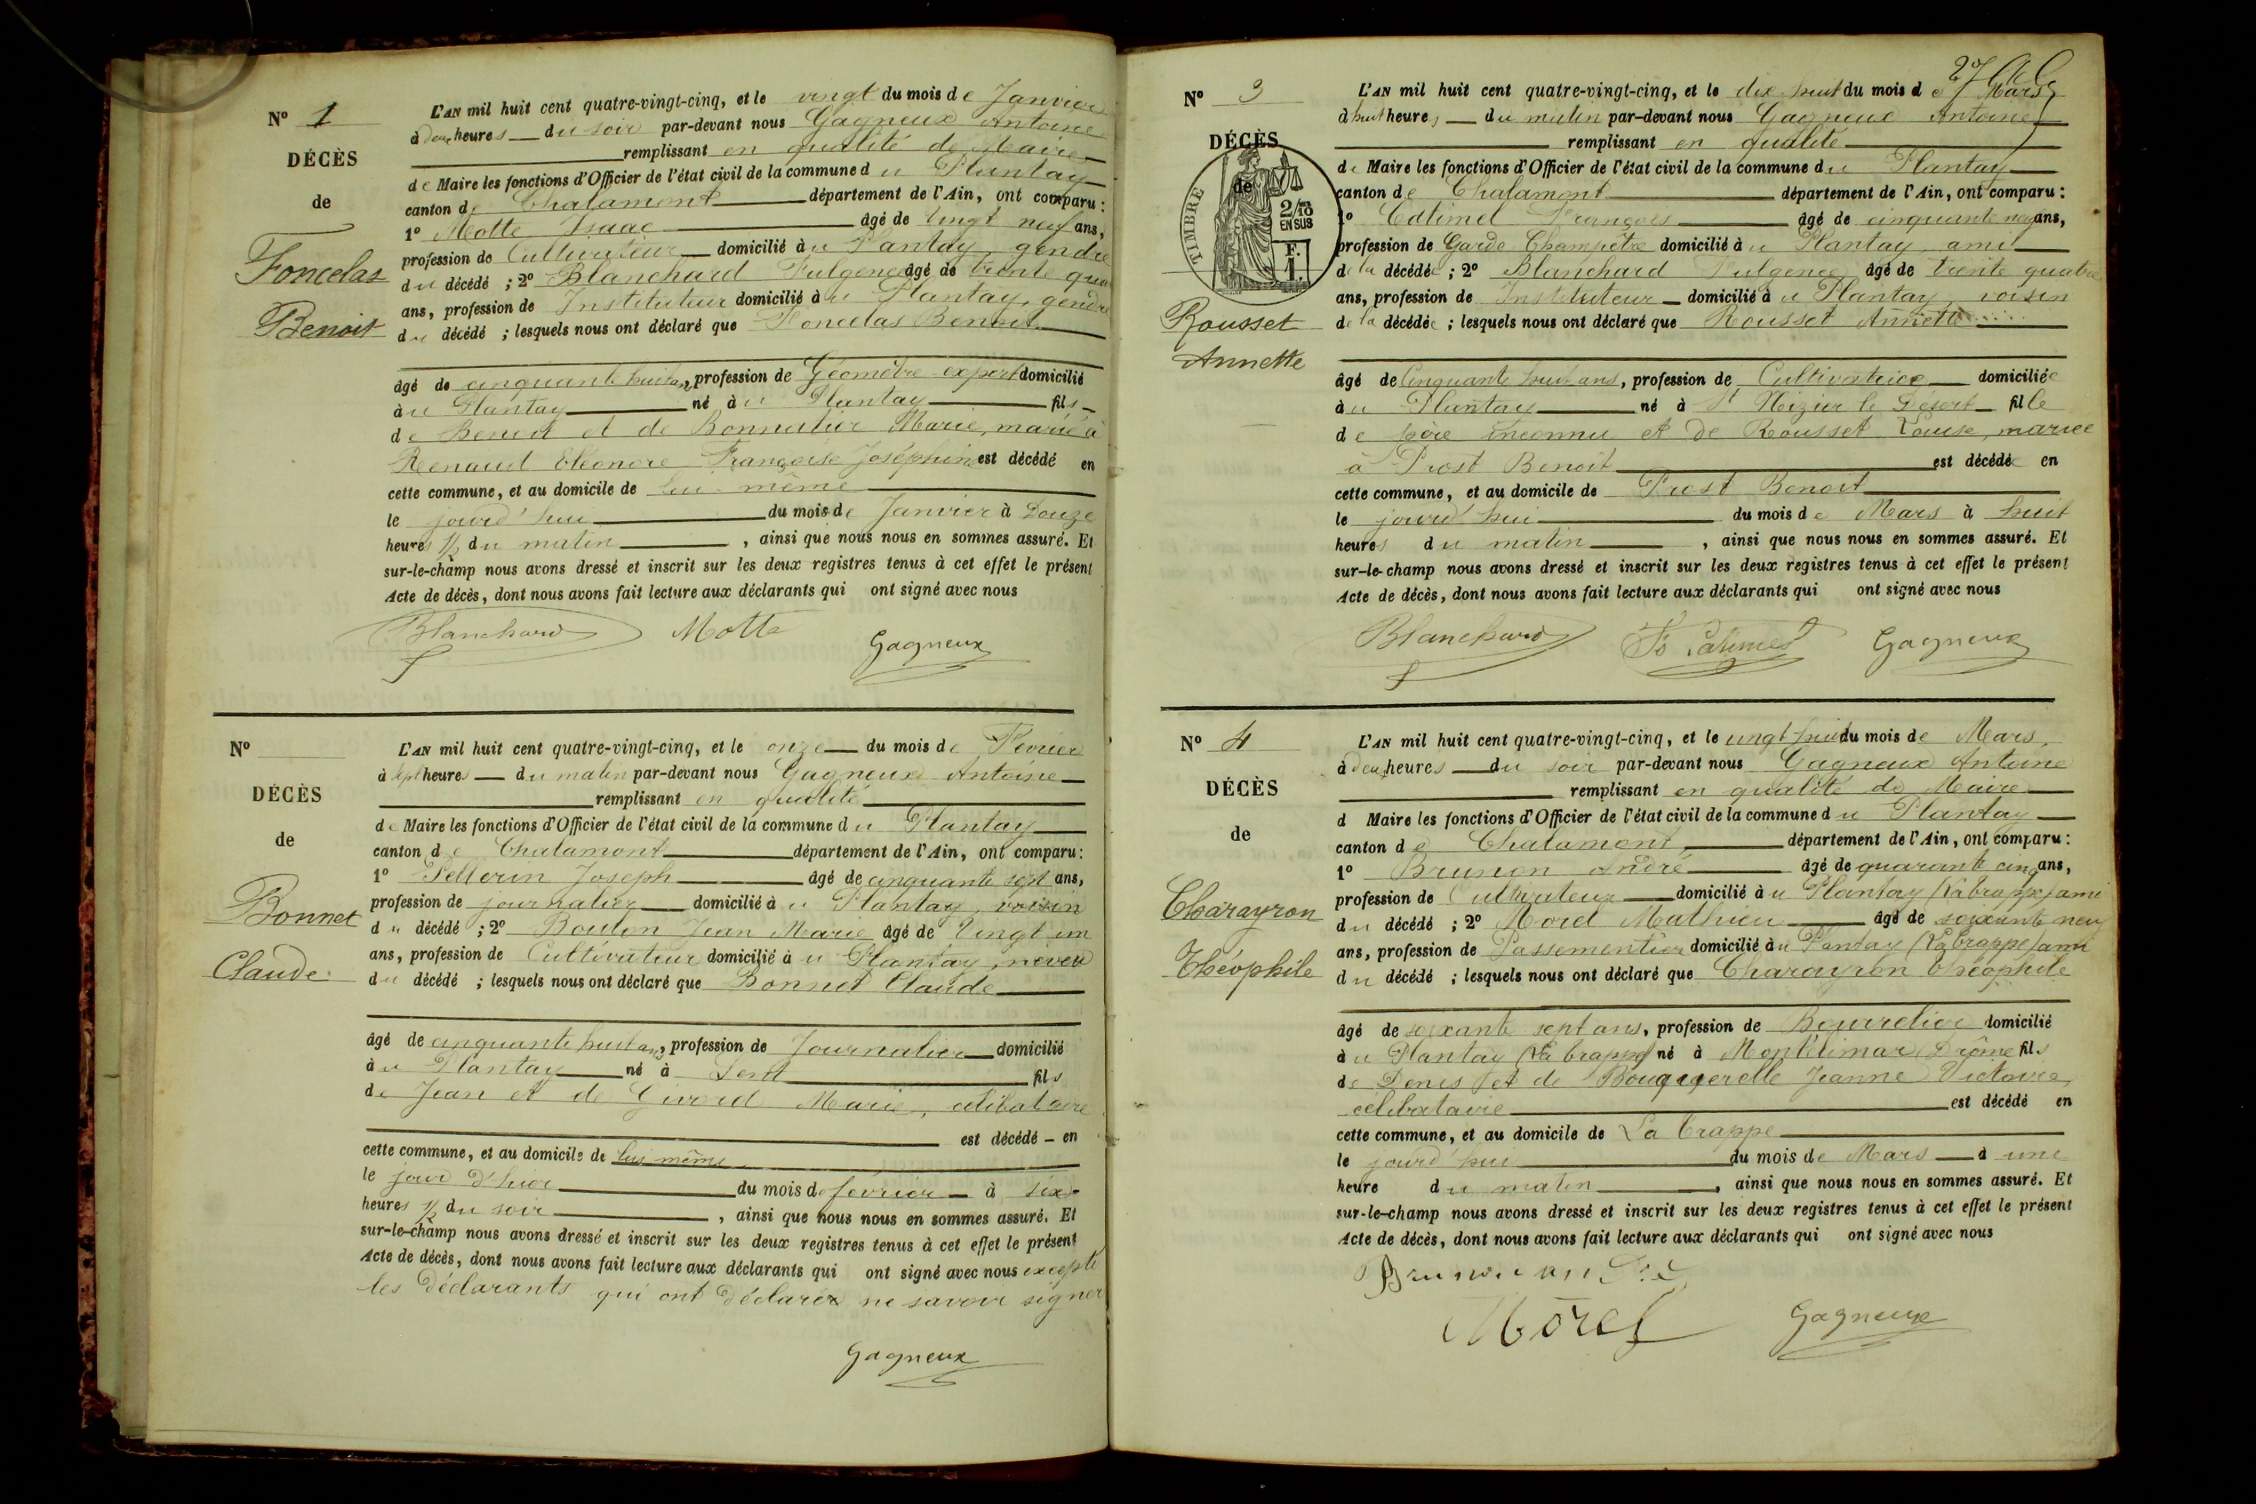 Nº 1
DÉCÈS
de
Foncelas
Benoit
L'AN mil huit cent quatre-vingt-cinq, et le vingt du mois de Janvier
à deux heures du soir par-devant nous Gagneux Antoine
remplissant en qualité de Maire
de Maire les fonctions d'Officier de l'état civil de la commune du Plantay
canton de Chalamont département de l'Ain, ont comparu :
1º Motte Isaac âgé de vingt neuf ans,
profession de Cultivateur domicilié au Plantay gendre
du décédé ; 2º Blanchard Fulgence âgé de trente quatre
ans, profession de Instituteur domicilié au Plantay, gendre
du décédé ; lesquels nous ont déclaré que Foncelas Benoit
âgé de cinquante huit ans, profession de Géomètre expert domicilié
au Plantay né au Plantay fils
de Benoit et de Bonnetier Marie, marié à
Renaud Eléonore Françoise Joséphine est décédé en
cette commune, et au domicile de lui-même
le jourd'hui du mois de Janvier à Douze
heures ½ du matin, ainsi que nous nous en sommes assuré. Et
sur-le-champ nous avons dressé et inscrit sur les deux registres tenus à cet effet le présent
Acte de décès, dont nous avons fait lecture aux déclarants qui ont signé avec nous
Blanchard Motte Gagneux
Nº
DÉCÈS
de
Bonnet
Claude
L'AN mil huit cent quatre-vingt-cinq, et le onze du mois de Février
à sept heures du matin par-devant nous Gagneux Antoine
remplissant en qualité
de Maire les fonctions d'Officier de l'état civil de la commune du Plantay
canton de Chalamont département de l'Ain, ont comparu :
1º Pellerin Joseph âgé de cinquante sept ans,
profession de journalier domicilié au Plantay, voisin
du décédé ; 2º Boulon Jean Marie âgé de vingt un
ans, profession de Cultivateur domicilié au Plantay, neveu
du décédé ; lesquels nous ont déclaré que Bonnet Claude
âgé de cinquante huit ans, profession de Journalier domicilié
au Plantay né à Lent fils
de Jean et de Givord Marie, célibataire
est décédé en
cette commune, et au domicile de lui même
le jour d'hier du mois de février à six
heures ½ du soir, ainsi que nous nous en sommes assuré. Et
sur-le-champ nous avons dressé et inscrit sur les deux registres tenus à cet effet le présent
Acte de décès, dont nous avons fait lecture aux déclarants qui ont signé avec nous excepté
les déclarants qui ont déclaré ne savoir signer
Gagneux
Nº 3
DÉCÈS
de
TIMBRE
2/10
EN SUS
F.
1.
Rousset
Annette
L'AN mil huit cent quatre-vingt-cinq, et le dix huit du mois de Mars
à huit heures du matin par-devant nous Gagneux Antoine
remplissant en qualité
de Maire les fonctions d'Officier de l'état civil de la commune du Plantay
canton de Chalamont département de l'Ain, ont comparu :
1º Catimel François âgé de cinquante neuf ans,
profession de Garde Champêtre domicilié au Plantay ami
de la décédée ; 2º Blanchard Fulgence âgé de trente quatre
ans, profession de Instituteur domicilié au Plantay, voisin
de la décédée ; lesquels nous ont déclaré que Rousset Annette
âgé de Cinquante huit ans, profession de Cultivatrice domiciliée
au Plantay né à St Nizier le Désert fille
de père inconnu et de Rousset Louise, mariée
à Prost Benoit est décédée en
cette commune, et au domicile de Prost Benoit
le jourd'hui du mois de Mars à huit
heures du matin, ainsi que nous nous en sommes assuré. Et
sur-le-champ nous avons dressé et inscrit sur les deux registres tenus à cet effet le présent
Acte de décès, dont nous avons fait lecture aux déclarants qui ont signé avec nous
Blanchard Fs Catimel Gagneux
Nº 4
DÉCÈS
de
Charayron
Théophile
L'AN mil huit cent quatre-vingt-cinq, et le vingt huit du mois de Mars
à deux heures du soir par-devant nous Gagneux Antoine
remplissant en qualité de Maire
d Maire les fonctions d'Officier de l'état civil de la commune du Plantay
canton de Chalamont, département de l'Ain, ont comparu :
1º Brunon André âgé de quarante cinq ans,
profession de Cultivateur domicilié au Plantay (La trappe) ami
du décédé ; 2º Morel Mathieu âgé de soixante neuf
ans, profession de Passementier domicilié au Plantay (La trappe) ami
du décédé ; lesquels nous ont déclaré que Charayron Théophile
âgé de soixante sept ans, profession de Bourrelier domicilié
au Plantay (La trappe) né à Montélimar Drôme fils
de Denis et de Bouquerelle Jeanne Victoire,
célibataire est décédé en
cette commune, et au domicile de La Trappe
le jourd'hui du mois de Mars à une
heure du matin, ainsi que nous nous en sommes assuré. Et
sur-le-champ nous avons dressé et inscrit sur les deux registres tenus à cet effet le présent
Acte de décès, dont nous avons fait lecture aux déclarants qui ont signé avec nous
Brunon andré
Morel Gagneux